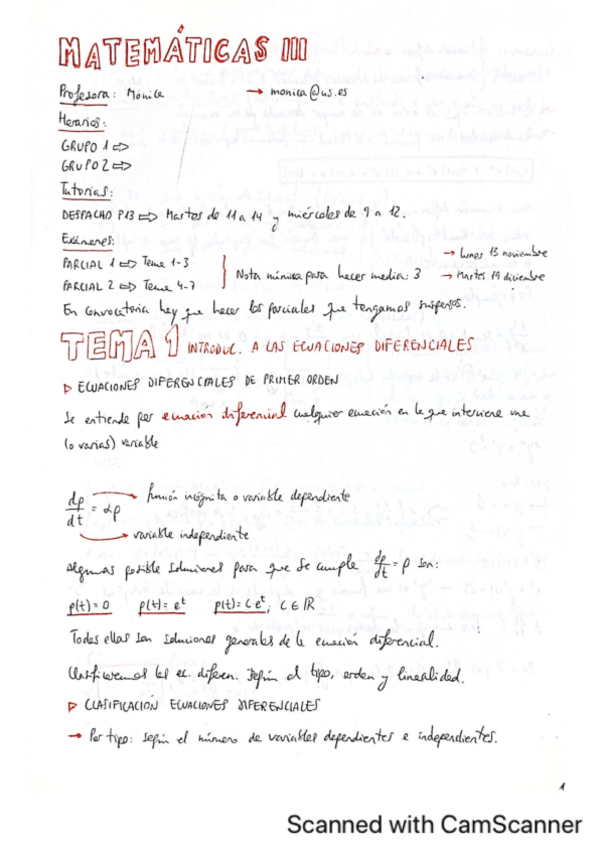 MATEMÁTICAS III
Profesora: Mónica → monica@us.es
Horarios:
GRUPO 1 ⇒
GRUPO 2 ⇒
Tutorias:
DESPACHO P13 ⇒ Martes de 11 a 14 y miércoles de 9 a 12.
Exámenes:
PARCIAL 1 ⇒ Tema 1-3
PARCIAL 2 ⇒ Tema 4-7
Nota mínima para hacer media: 3
→ lunes 13 noviembre
→ Martes 19 diciembre
En convocatoria hay que hacer los parciales que tengamos suspensos.
TEMA 1 INTRODUC. A LAS ECUACIONES DIFERENCIALES
▷ ECUACIONES DIFERENCIALES DE PRIMER ORDEN
Se entiende por ecuación diferencial cualquier ecuación en la que interviene una
(o varias) variable
dp/dt = αp
→ función incógnita o variable dependiente
→ variable independiente
Algunas posible soluciones para que se cumpla dp/dt = p son:
p(t)=0 p(t)=e^t p(t)=Ce^t; C∈ℝ
Todas ellas son soluciones generales de la ecuación diferencial.
Clasificaremos las ec. diferen. según el tipo, orden y linealidad.
▷ CLASIFICACIÓN ECUACIONES DIFERENCIALES
→ Por tipo: según el número de variables dependientes e independientes.
1
Scanned with CamScanner